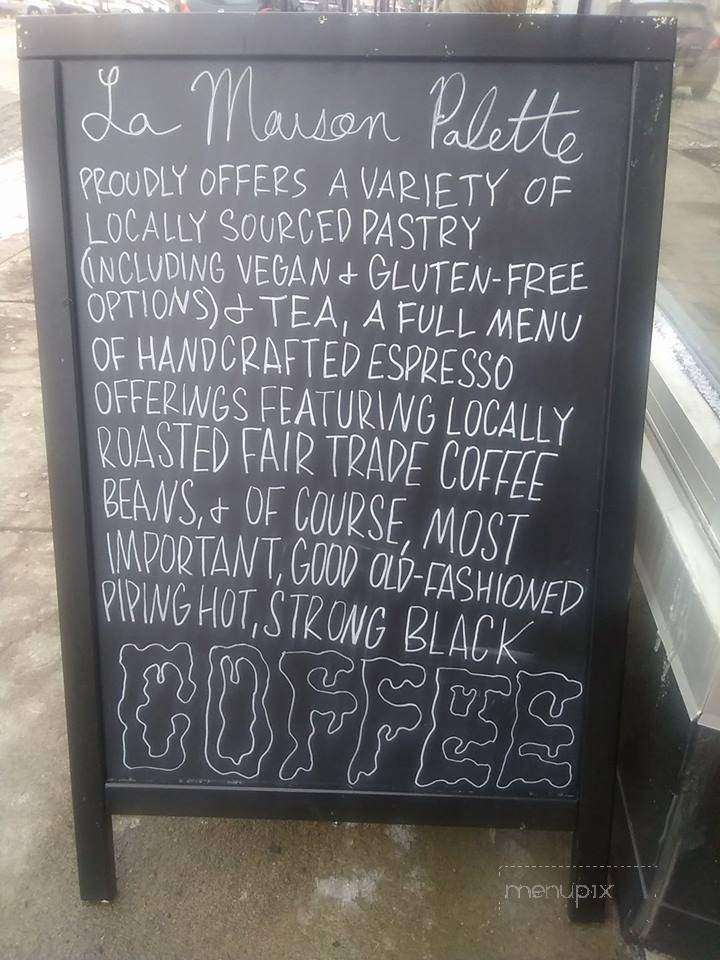 La Maison Palette
PROUDLY OFFERS A VARIETY OF
LOCALLY SOURCED PASTRY
(INCLUDING VEGAN & GLUTEN-FREE
OPTIONS) & TEA, A FULL MENU
OF HANDCRAFTED ESPRESSO
OFFERINGS FEATURING LOCALLY
ROASTED FAIR TRADE COFFEE
BEANS, & OF COURSE, MOST
IMPORTANT, GOOD OLD-FASHIONED
PIPING HOT, STRONG BLACK
COFFEE
menupix